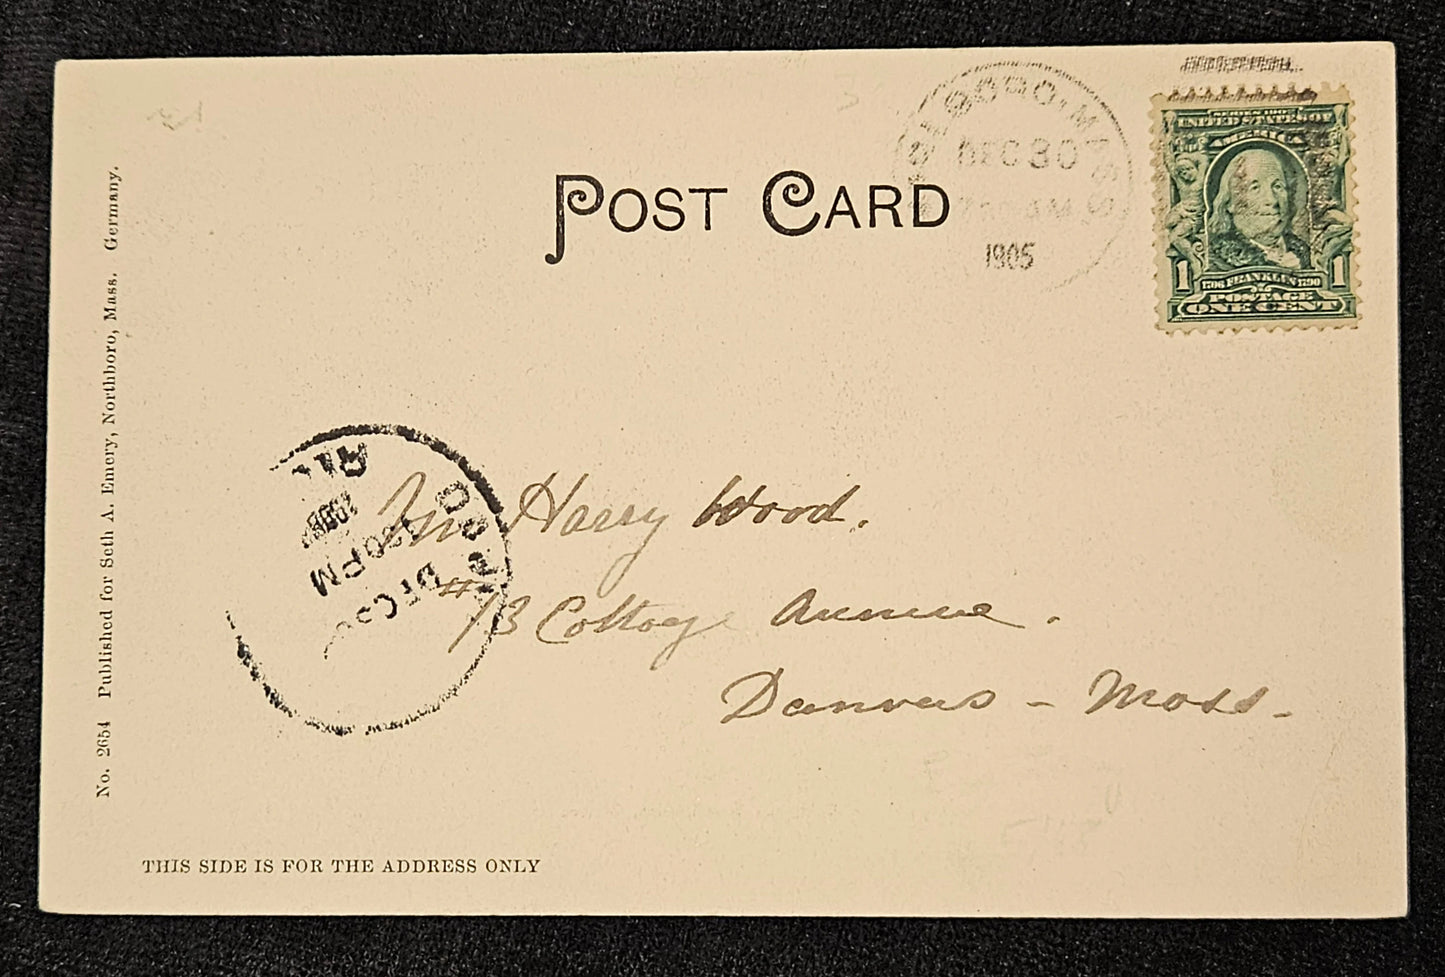 POST CARD
DEC 30
AM
1905
SERIES 1902
UNITED STATES OF
AMERICA
1 1706 FRANKLIN 1790 1
POSTAGE
ONE CENT
No. 2654 Published for Seth A. Emery, Northboro, Mass. Germany.
DEC 30
PM
Mr Harry Wood.
#13 Cottage Avenue.
Danvers - Mass.
THIS SIDE IS FOR THE ADDRESS ONLY